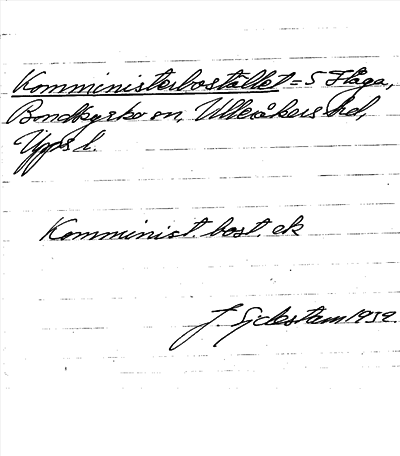 Komministerbostället = S Håga,
Bondkyrko sn, Ulleråkers hd,
Upps l.
Komminist. bost. ek
J. Sjelestam 1932